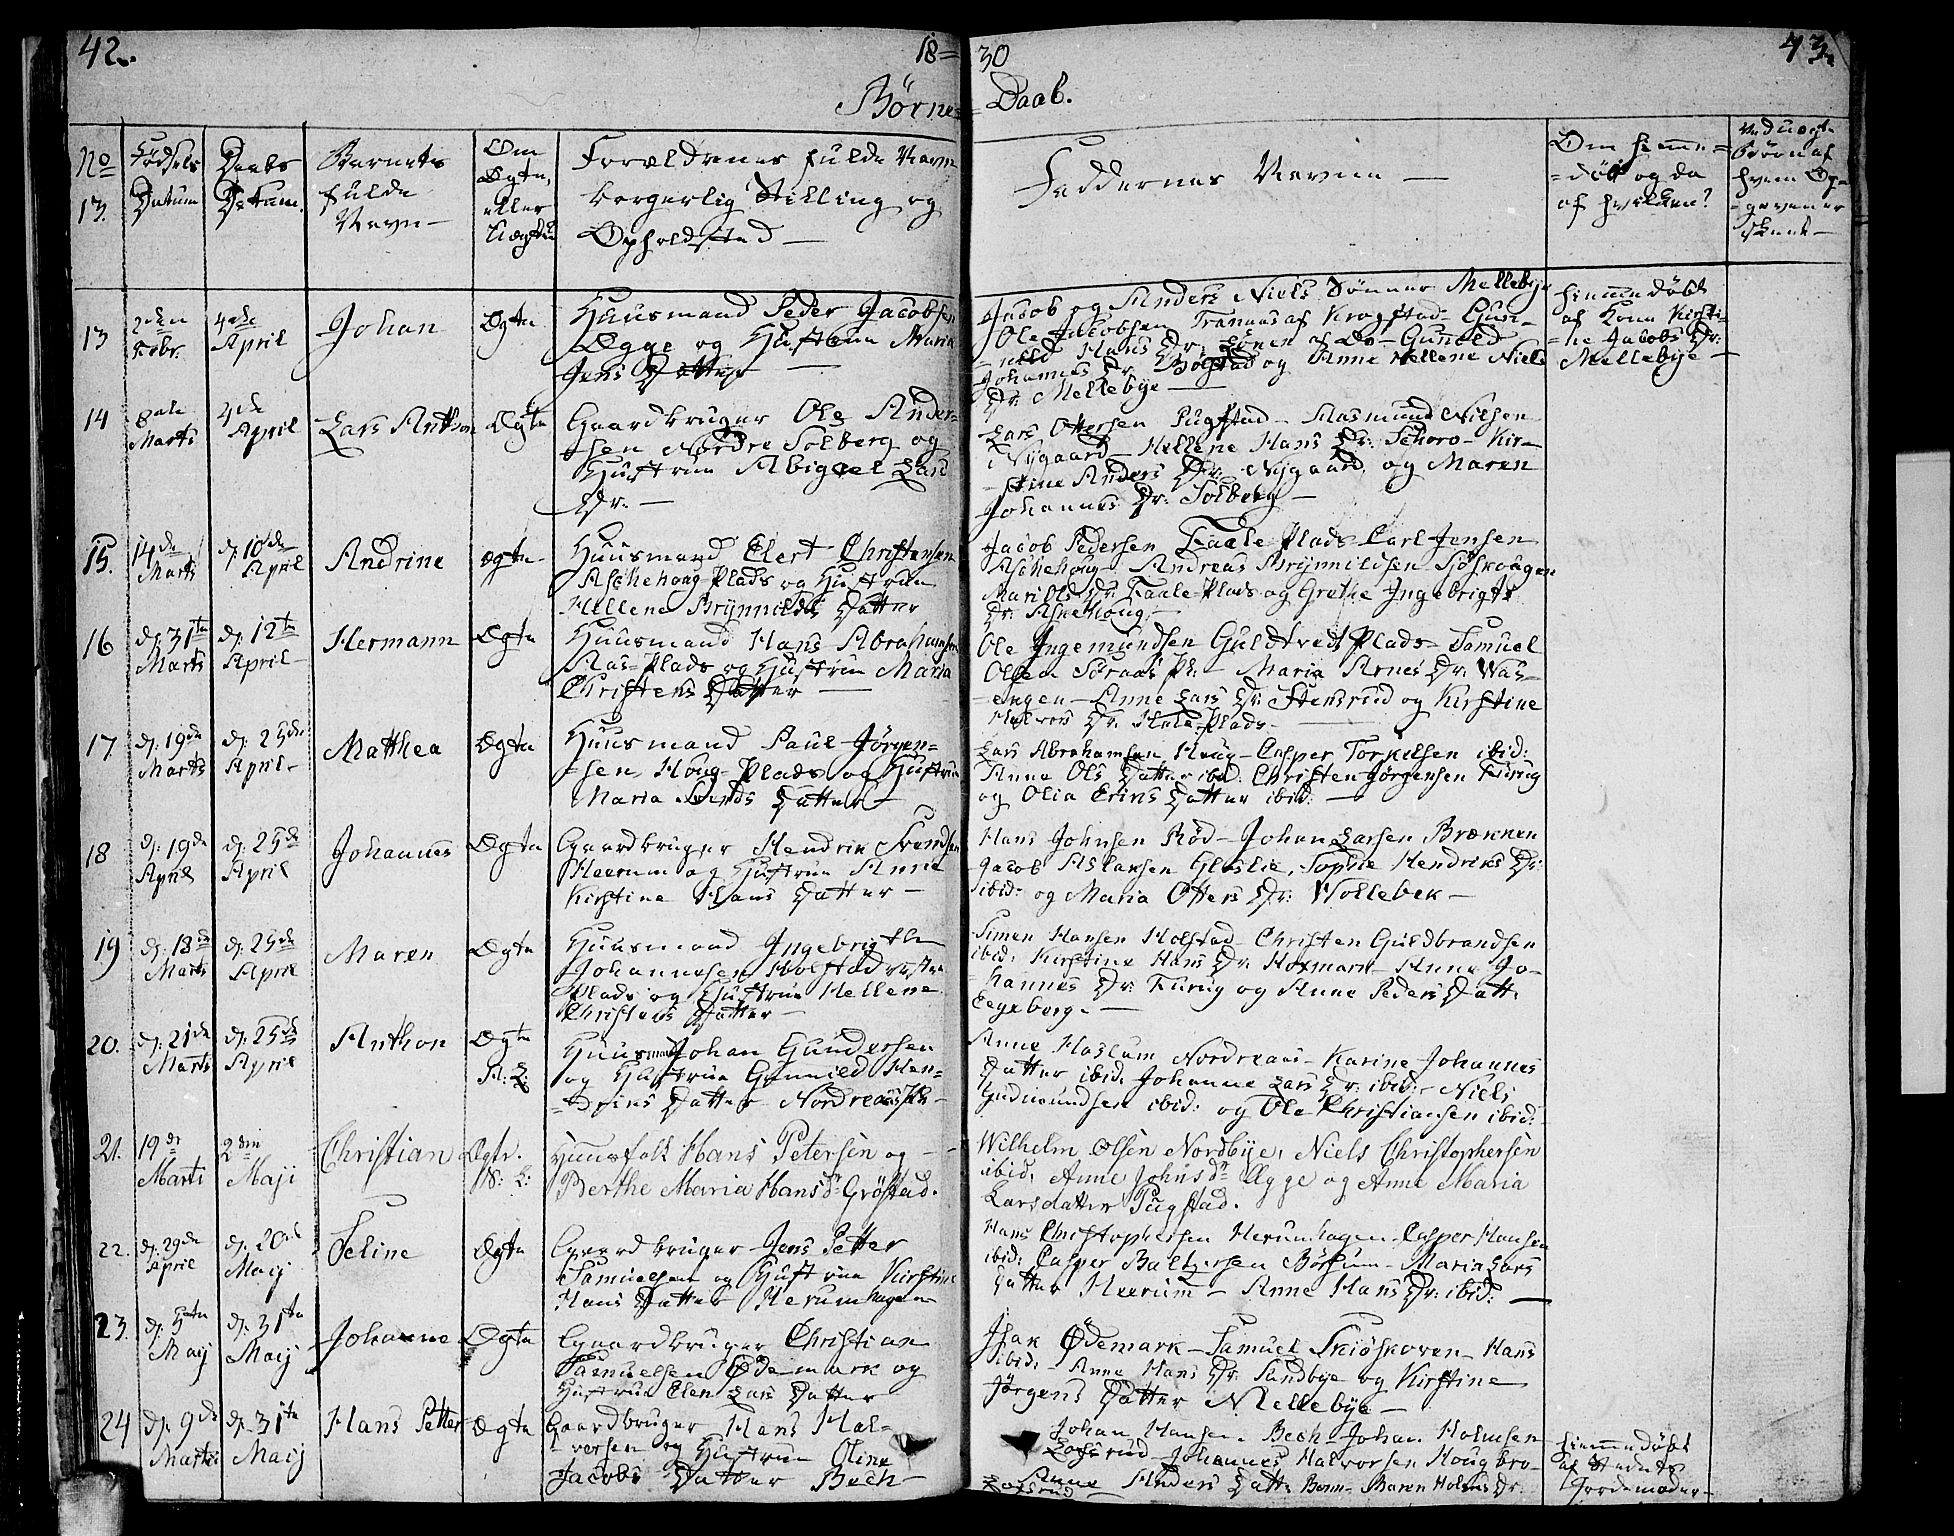 42.
18=
30
43.
Børne=
=Daab.
No
13.
Fødsels
Datum
Daabs
Datum.
Barnets
fulde
Navn-
Om
Ægte,
eller
Uægte
Forældrenes fulde Navn
borgerlig Stilling og
Opholdsted-
Faddernes Navne -
Om hjemme=
=døbt og da
af hvilken?
Ved uægte
Børn af
hvem Op=
=gaven er
skeet-
13
2den
Febr.
4de
April
Johan
Ægte
Huusmand Peder Jacobsen
Ægge og Hustrue Maria
Jens Datter -
Jacob og Anders Niels Sønner Mellebye
Ole Jacobsen Tranaas af Kragstad- Gun-
=nild Hans Dr: af Do- Gunild
Johannes Dr: Bolstad og Anne Hellene Niels
Dr: Mellebye -
hjemmedøbt
af Kone Kirsti-
=ne Jacobs Dr:
Mellebye-
14
8de
Marts
4de
April
Lars Anthon
Ægte
Gaardbruger Ole Ander=
=sen Nordre Solberg og
Hustrue Abigael Lars
Dr. -
Lars Ottersen Pugstad- Aasmund Nilsen
i Nygaard- Hellene Hans Dr: Schoro- Kir-
=stine Anders Dr: Nygaard og Maren
Johannes Dr: Solberg-
15.
14de
Marts
d. 10de
April
Andrine
Ægte-
Huusmand Elert Christensen
Aschehoug-Plads og Hustrue
Hellene Brynnilds Datter
Jacob Pedersen Faale-Plads- Carl Jensen
Aschehoug- Andreas Brynnildsen Sjøskougen
Mari Ols Dr: Faale-Plads og Grethe Ingebrigts
Dr: Askehoug.-
16
d. 31te
Marts
d. 12te
April-
Hermann
Ægte
Huusmand Hans Abrahamsen
Aas-Plads og Hustrue Maria
Christens Datter -
Ole Ingemundsen Guldtvedt Plads- Samuel
Olsen Soraas Pl. - Maria Arnes Dr: Was-
=engen- Anne Lars Dr: Stensrud og Kirstine
Halvors Dr: Plads-
17
d. 19de
Marts
d. 25de
April-
Matthea
Ægte
Huusmand Paul Jørgen=
=sen Houg-Plads og Hustrue
Maria Datter-
Lars Abrahamsen Houg- Casper Torkelsen ibid:
Anne Ols Datter ibid. Christen Jørgensen Furug
og Olia Eriks Datter ibid: -
18
d. 19de
April
d. 25de
April
Johannes
Ægte
Gaardbruger Hendrik Svendsen
Heerum og Hustrue Anne
Kirstine Hans Datter -
Hans Johnsen Rød- Johan Larsen Brækken
Jacob Aslaksen Gloslie, Sophie Hendriks Dr:
ibid: og Maria Otters Dr: Wollebek-
19
d. 18de
Marts
d. 25de
April
Maren
Ægte
Huusmand Ingebrigt
Johannesen Holstad
Plads og Hustrue Hellene
Christens Datter-
Simen Hansen Holstad- Christen Guldbrandsen
ibid: Kirstine Hans Dr: Hoxmark- Anne Jo-
=hannes Dr: Furug og Anne Peders Datt:
Eegeberg.-
20.
d. 21de
Marts
d. 25de
April
Anthon
Ægte
N: L:
Huusmand Johan Gundersen
og Hustrue Gunnild Hen=
=driks Datter Nordreaas Pl:-
Anne Haslum Nordreaas- Karine Johannes
Datter ibid. Johanne Lars Dr: ibid:- Niels
Gudmundsen ibid: og Ole Christiansen ibid:-
21.
19de
Marti
2den
Maji
Christian
Ægte.
N: L:
Huusfolk Hans Petersen og -
Berthe Maria Hansdr Grøstad.
Wilhelm Olsen Nordbye, Niels Christophersen
ibid. Anne Johnsdr Ægge og Anne Maria
Larsdatter Pugstad.
22.
d. 29de
April
d. 20de
Maij
Seline
Ægte
Gaardbruger Jens Petter
Samuelsen og Hustrue Kirstine
Hans Datter Herumhagen
Hans Christophersen Herumhagen- Casper Hansen
ibid: Casper Baltzersen Børsum- Maria Lars
Datter Heerum- Anne Hans Dr: ibid: -
23.
d. 5te
Maij
d. 31te
Maij
Johanne
Ægte
Gaardbruger Christian
Samuelsen Ødemark og
Hustrue Elen Lars Datter
Isak Ødemark- Samuel Skiøskoven- Hans
ibid: Anne Hans Dr: Sundbye og Kirstine
Jørgens Datter Mellebye-
24
d. 9de
Martii
d. 31te
Maij
Hans Petter
Ægte
Gaardbruger Hans Hal=
=versen og Hustrue Oline
Jacobs Datter Bech-
Johan Hansen Bech- Johan Holmsen
Johannes Halvorsen Hougbro-
Anne Anders Datt: Maren Holms Dr:
hjemmedøbt
af Stedets
Jordemoder-